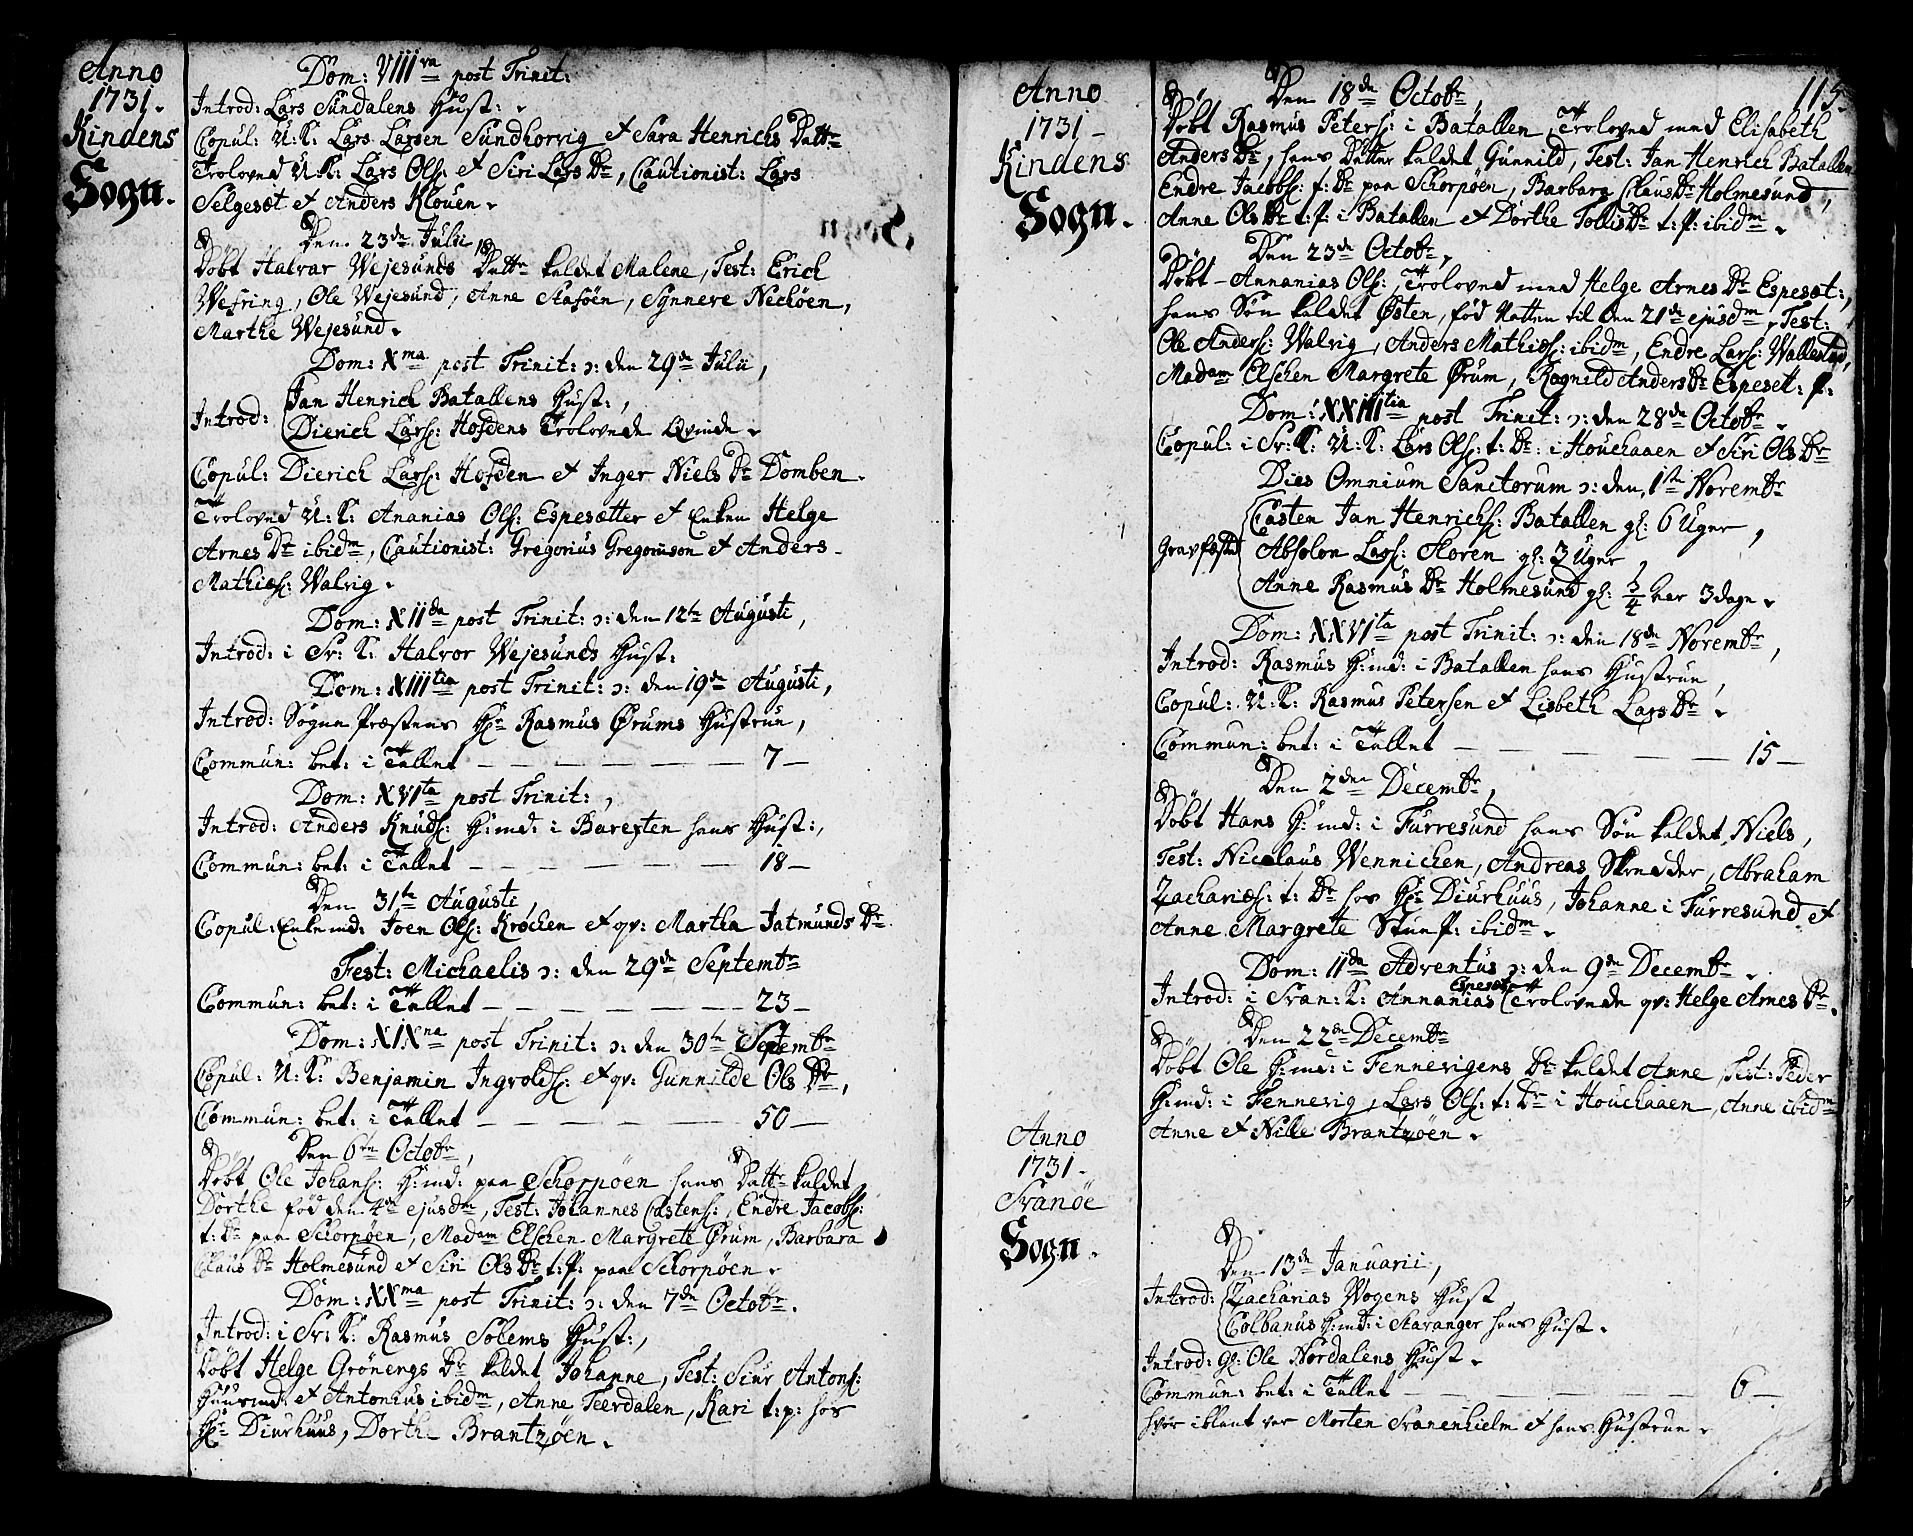 Anno
1731.
Kindens
Sogn.
Dom: VIIIva post Trinit:
Introd: Lars Sundalens Hust:
Copul: U: K: Lars Larsen Sundhorvig et Sara Henrichs Dattr
Troloved U: K: Lars Ols: et Siri Lars Dr, Cautionist: Lars
Selgesæt et Anders Klouen.
Den 23de Julii
Døbt Halvar Wejesunds Dattr kaldet Malene, Test: Erich
Wefring, Ole Wejesund, Anne Stasøen, Synneve Nechøen,
Marthe Wejesund.
Dom: Xma post Trinit: ɔ: den 29de Julii,
Introd: Jan Henrich Batallens Hust:,
Dierich Lars: Hofdens Trolovede Qvinde.
Copul: Dierich Lars: Hofden et Inger Niels Dr Domben.
Troloved U: K: Ananias Ols: Espesætter et Enken Helge
Arnes Dr ibidm, Cautionist: Gregorius Gregoriuson et Anders
Mathiæs: Walvig.
Dom: XIIda post Trinit: ɔ: den 12te Augusti,
Introd: i Sv: K: Halvor Wejesunds Hust:
Dom: XIIItia post Trinit: ɔ: den 19de Augusti,
Introd: Sogne Præstens Hr Rasmus Ørums Hustrue,
Commun: bet: i Tallet — 7 —
Dom: XVIta post Trinit:,
Introd: Anders Knuds: H:md: i Barexten hans Hust:,
Commun: bet: i Tallet — 18 —
Den 31te Augusti
Copul: Enkemd: Joen Ols: Krøchen et qv: Martha Jatmunds Dr
Fest: Michaelis ɔ: den 29de Septembr
Commun: bet: i Tallet — 23 —
Dom: XIXna post Trinit: ɔ: den 30te Septembr
Copul: U: K: Benjamin Ingvolds: et qv: Gunnilde Ols Dr,
Commun: bet: i Tallet — 50 —
Den 6te Octobr,
Døbt Ole Johans: H:md: paa Schorpøen hans Dattr kaldet
Dorthe fød den 4de ejusdm, Test: Johannes Castens:, Endre Jacobs:
t: Dr paa Schorpøen, Madam Elschen Margrete Ørum, Barbara
Claus Dr Holmesund et Siri Ols Dr t: p: paa Schorpøen.
Dom: XXma post Trinit: ɔ: den 7de Octobr.
Introd: i Sv: K: Rasmus Solems Hust:,
Døbt Helge Grønengs Dr kaldet Johanne, Test: Siur Antons:
Huusmd: et Antonius ibidm, Anne Teerdalen, Kari t: p: hos
Hr Diurhuus, Dorthe Brantzøen.
Anno
1731
Kindens
Sogn.
115.
Den 18de Octobr,
Døbt Rasmus Peters: i Batallen Troloved med Elisabeth
Anders Dr, hans Datter kaldet Gunnild, Test: Jan Henrich Batallen
Endre Jacobs: t: Dr paa Schorpøen, Barbara Claus Dr Holmesund,
Anne Ols Dr t: p: i Batallen et Dorthe Tollis Dr t: p: ibidm.
Den 23de Octobr,
Døbt Annanias Ols: Trolovet med Helge Arnes Dr Espesæt:,
hans Søn kaldet Østen, fød Natten til den 21de ejusdm, Test:
Ole Anders: Walvig, Anders Mathiæs: ibidm, Endre Lars: Wallestad,
Madam Elschen Margrete Ørum, Ragnild Anders Dr Espeset: p:
Dom: XXIIItia post Trinit: ɔ: den 28de Octobr.
Copul: i Sv: K: U: K: Lars Ols: t: Dr: i Houchaaen et Siri Ols Dr
Dies Omnium Sanctorum ɔ: den 1ste Novembr
Casten Jan Henrichs: Batallen gl: 6 Uger,
Gravfæsted Absolon Lars: Storen gl: 3 Uger,
Anne Rasmus Dr Holmesund gl: 3/4 aar 3 dage.
Dom: XXVIta post Trinit: ɔ: den 18de Novembr,
Introd: Rasmus H:md: i Batallen hans Hustrue,
Copul: U: K: Rasmus Petersen et Lisbeth Lars Dr.
Commun: bet: i Tallet — 15 —
Den 2den Decembr,
Døbt Hans H:md: i Furresund hans Søn kaldet Niels,
Test: Nicolaus Wennichen, Andreas Skredder, Abraham
Zachariæs: t: Dr hos Hr Diurhuus, Johanne i Furresund et
Anne Margrete Stuep: ibidm.
Dom: IIda Adventus ɔ: den 9de Decembr.
Introd: i Svan: K: Annanias Espesæt Trolovede qv: Helge Arnes Dr.
Den 22de Decembr
Døbt Ole H:md: i Fennevigens Dr kaldet Anne, Test: Peder
H:md: i Fennevig, Lars Ols: t: Dr i Houchaaen, Anne ibidm
Anne et Nille Brantzøen.
Anno
1731.
Svanøe
Sogn.
Den 13de Januarii,
Introd: Zacharias Vogens Hust
Colbanus H:md: i Stavanger hans Hust.
Introd: gl: Ole Nordalens Hust.
Commun: bet: i Tallet — 6 —
hvor iblant var Morten Svanenhielm et hans Hustrue.